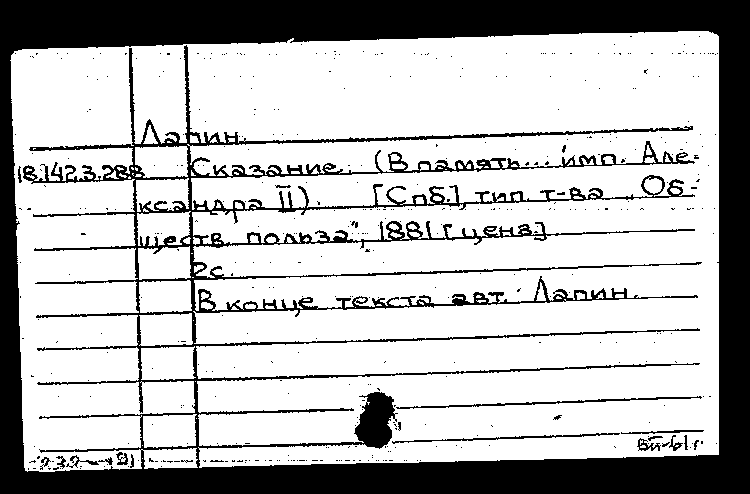 Лапин.
18.142.3.288 Сказание. (В память... имп. Але-
ксандра II). [Спб.], тип. т-ва „Об-
ществ. польза", 1881 [ценз.]
2с.
В конце текста авт.: Лапин.